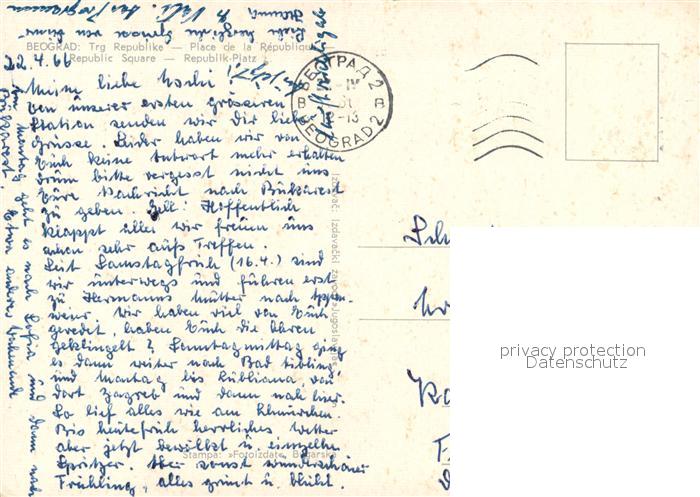 BEOGRAD: Trg Republike — Place de la République
Republic Square — Republik-Platz
22.4.66
Meine liebe
von unserer ersten grösseren
Station senden wir Dir liebe
Grüsse. Leider haben wir von
Euch keine Antwort mehr erhalten
drum bitte vergesst nicht uns
Eure Nachricht nach Bukarest
zu geben. Gell! Hoffentlich
klappt alles wir freuen uns
schon sehr aufs Treffen.
Seit Samstagfrüh (16.4.) sind
wir unterwegs und führen erst
zu Hermanns Mutter nach
wir haben viel von Euch
geredet, haben Euch die Ohren
geklingelt? Samstagmittag ging
es dann weiter nach Bad Aibling
und Montag bis Lubliana, von
dort Zagreb und dann nach hier.
So lief alles wie am Schnürchen.
Bis heutefrüh herrliches Wetter
aber jetzt bewölkt u. einzelne
Spritzer. Aber sonst wunderschöner
Frühling, alles grünt u. blüht.
Am Montag geht es nach Sofia und dann nach
Bukarest.
БЕОГРАД 2
BEOGRAD 2
Stampa: »Fotoizdat«
privacy protection
Datenschutz